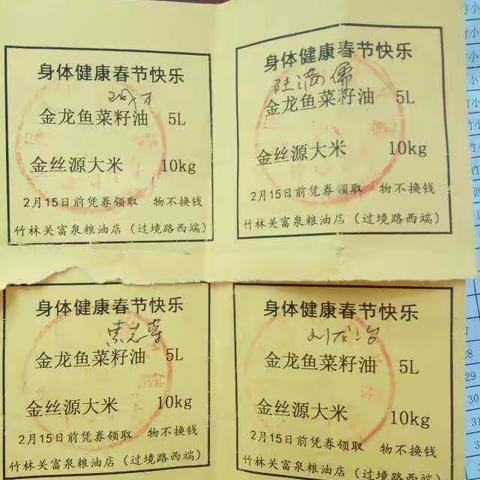 身体健康春节快乐
金龙鱼菜籽油 5L
金丝源大米 10kg
2月15日前凭券领取 物不换钱
竹林关富泉粮油店（过境路西端）
身体健康春节快乐
金龙鱼菜籽油 5L
金丝源大米 10kg
2月15日前凭券领取 物不换钱
竹林关富泉粮油店（过境路西端）
身体健康春节快乐
金龙鱼菜籽油 5L
金丝源大米 10kg
2月15日前凭券领取 物不换钱
竹林关富泉粮油店（过境路西端）
身体健康春节快乐
金龙鱼菜籽油 5L
金丝源大米 10kg
2月15日前凭券领取 物不换钱
竹林关富泉粮油店（过境路西端）